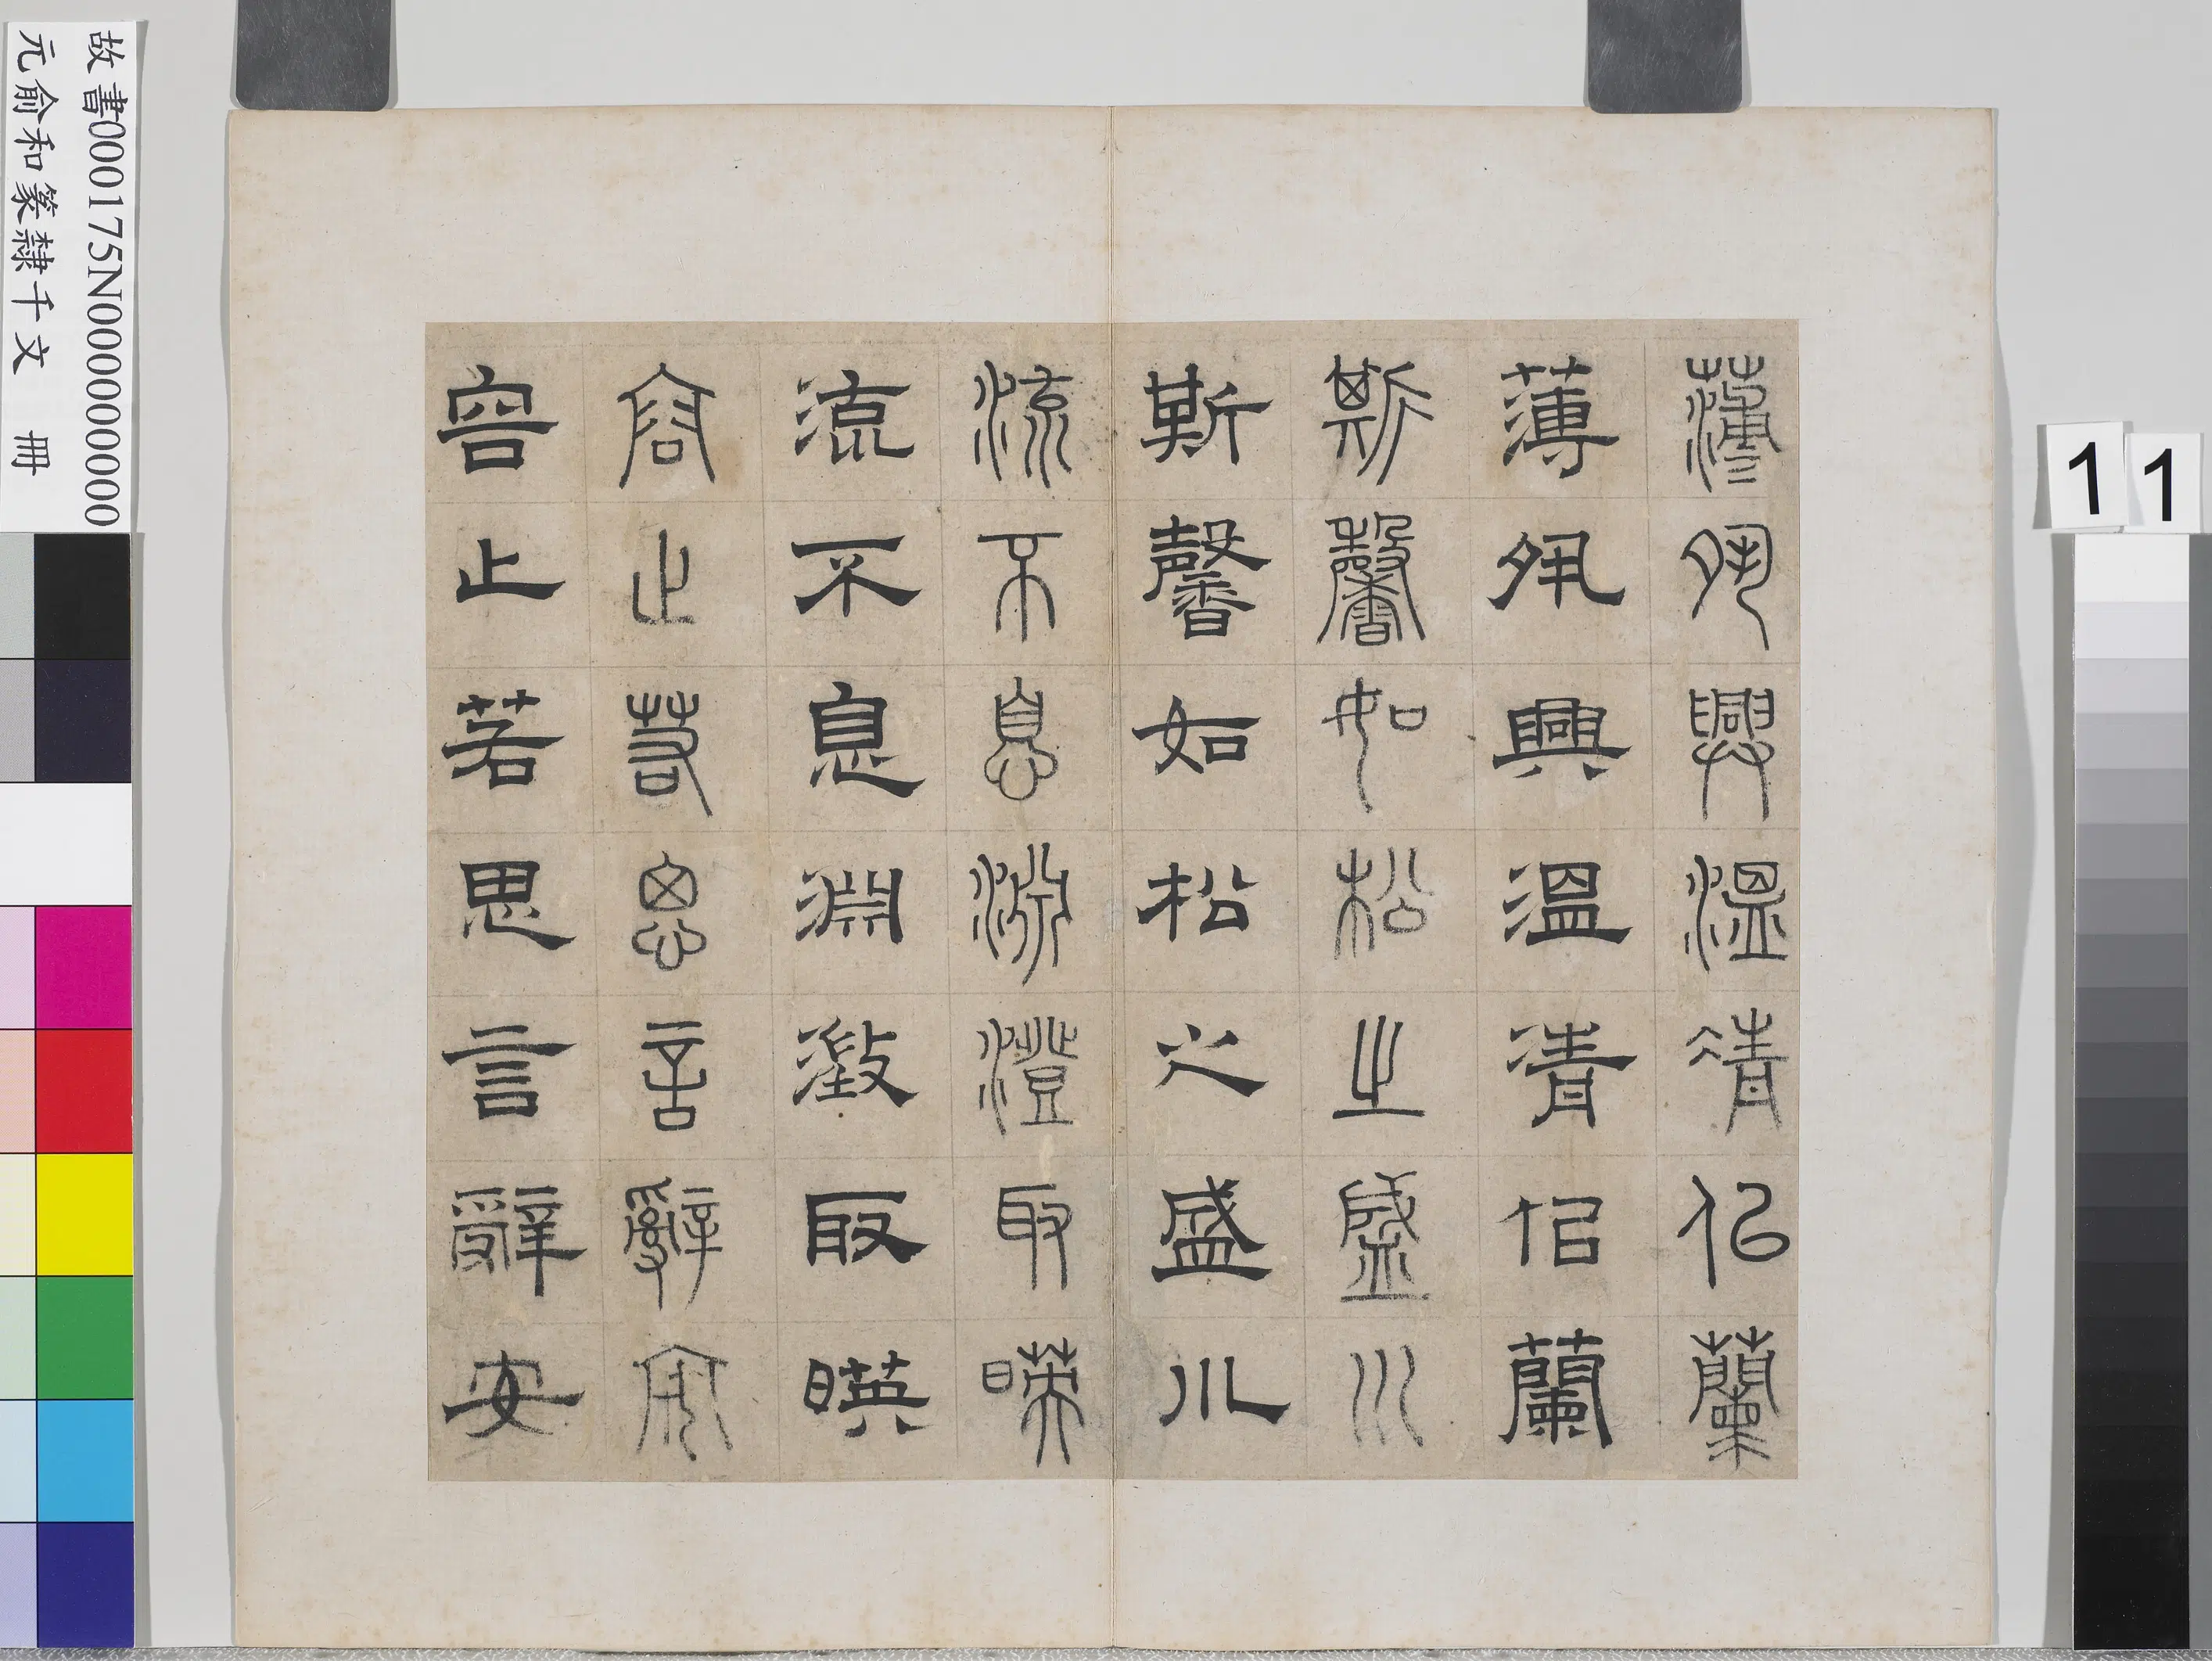 薄夙興溫凊似蘭
薄夙興溫清佀蘭
斯馨如松之盛川
斯馨如松之盛川
流不息淵澄取暎
流不息淵澂取暎
容止若思言辭安
容止若思言辭安
故書000175N000000000
元俞和篆隸千文 冊
1
1